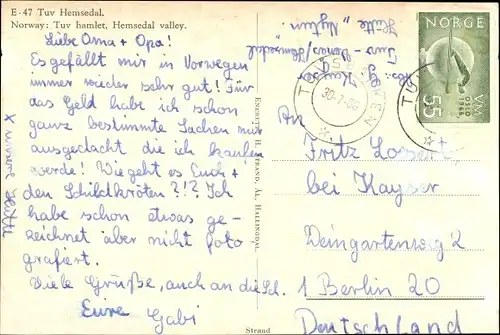 E-47 Tuv Hemsedal.
Norway: Tuv hamlet, Hemsedal valley.
Liebe Oma + Opa!
Es gefällt mir in Norwegen
immer wieder sehr gut! Für
das Geld habe ich schon
ganz bestimmte Sachen mir
ausgedacht die ich kaufen
werde! Wie geht es Euch +
den Schildkröten?!? Ich
habe schon etwas ge-
zeichnet aber nicht foto
grafiert.
Viele Grüße, auch an die Sch.
Eure Gabi
x unsere Hütte
ENERETT: H. STRAND, ÅL, HALLINGDAL.
Strand
Hütte "
Tuv -
Hemsedal
NORGE
VM
OSLO
1966
55
TUV
30-7-66
TUV
An
Fritz
bei Kayser
Weingartenweg 2
1 Berlin 20
Deutschland